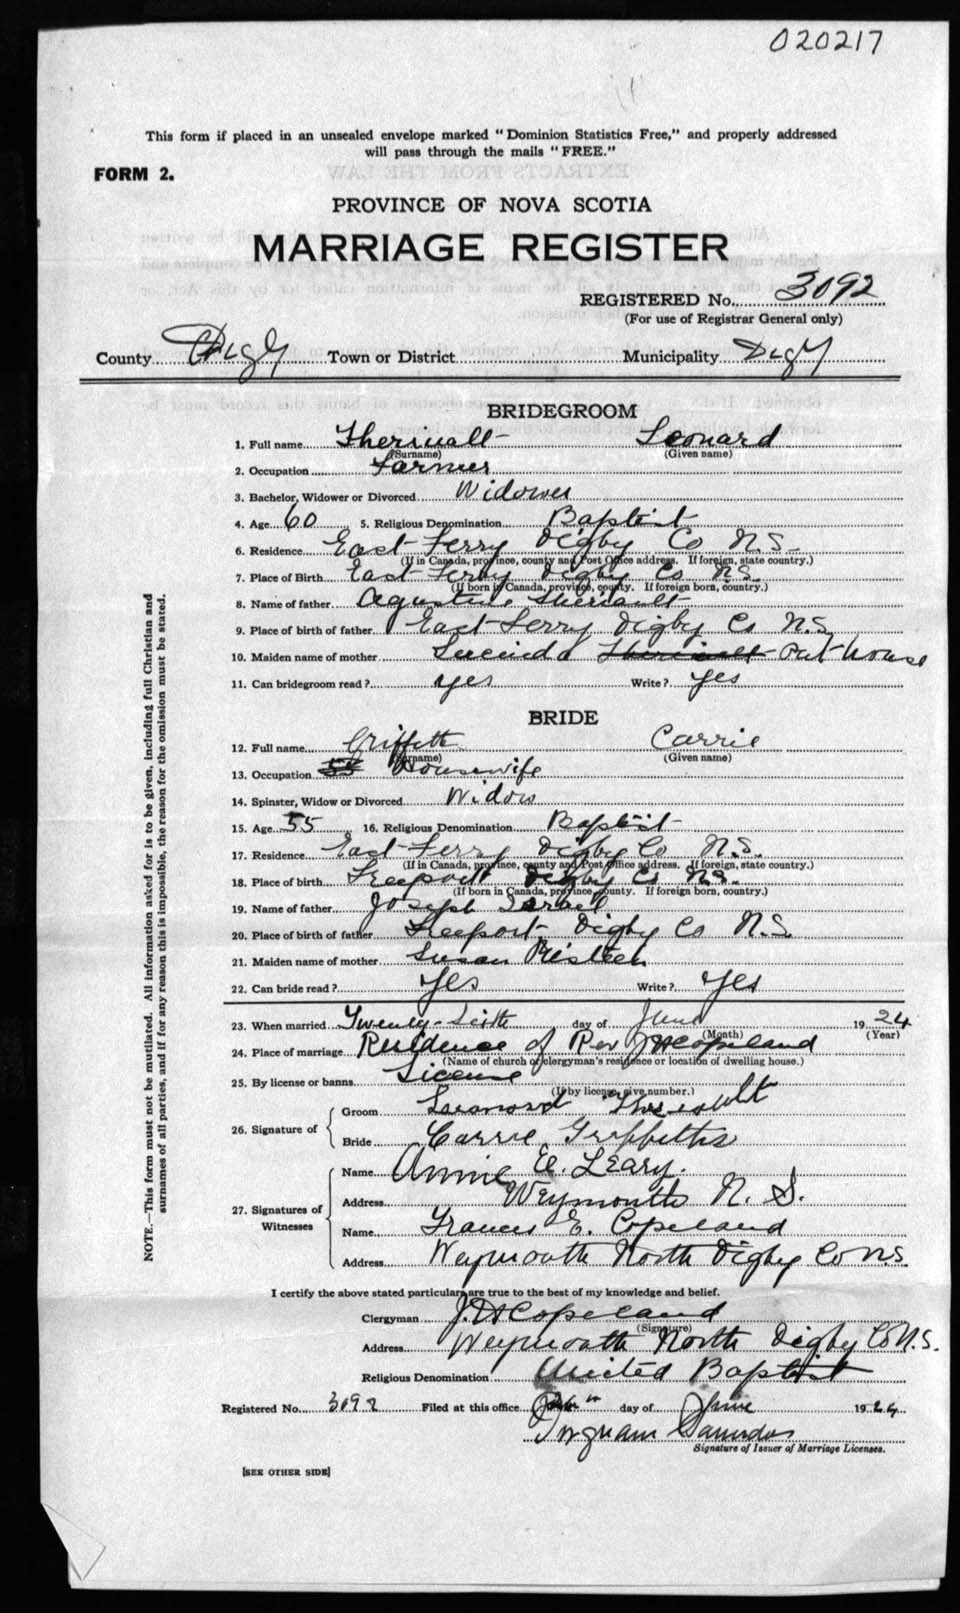 020217
This form if placed in an unsealed envelope marked "Dominion Statistics Free," and properly addressed
will pass through the mails "FREE."
FORM 2.
PROVINCE OF NOVA SCOTIA
MARRIAGE REGISTER
REGISTERED No. 3092
(For use of Registrar General only)
County Digby Town or District Municipality Digby
BRIDEGROOM
1. Full name Theriualt Leonard
(Surname) (Given name)
2. Occupation Farmer
3. Bachelor, Widower or Divorced Widower
4. Age 60 5. Religious Denomination Baptist
6. Residence East Ferry Digby Co N.S.
(If in Canada, province, county and Post Office address. If foreign, state country.)
7. Place of Birth East Ferry Digby Co N.S.
(If born in Canada, province, county. If foreign born, country.)
8. Name of father Agustine Theriault
9. Place of birth of father East Ferry Digby Co N.S.
10. Maiden name of mother Lucinda Theriault Outhouse
11. Can bridegroom read? yes Write? yes
BRIDE
12. Full name Griffeth Carrie
(Surname) (Given name)
13. Occupation 55 Housewife
14. Spinster, Widow or Divorced Widow
15. Age 55 16. Religious Denomination Baptist
17. Residence East Ferry Digby Co N.S.
(If in Canada, province, county and Post Office address. If foreign, state country.)
18. Place of birth Freeport Digby Co N.S.
(If born in Canada, province, county. If foreign born, country.)
19. Name of father Joseph Israel
20. Place of birth of father Freeport Digby Co N.S.
21. Maiden name of mother Susan
22. Can bride read? Yes Write? Yes
23. When married Twenty-Sixth day of June 1924
(Month) (Year)
24. Place of marriage Residence of Rev J H Copeland
(Name of church or clergyman's residence or location of dwelling house.)
25. By license or banns License
(If by license, give number.)
26. Signature of
Groom Leonard Theriault
Bride Carrie Griffeths
27. Signatures of Witnesses
Name Annie E. Leary.
Address Weymouth N. S.
Name Frances E. Copeland
Address Weymouth North Digby Co N.S.
I certify the above stated particulars are true to the best of my knowledge and belief.
Clergyman J. H Copeland
(Signature)
Address Weymouth North Digby Co N.S.
Religious Denomination United Baptist
Registered No. 3092 Filed at this office 26" day of June 1924
Ingram Saunders
Signature of Issuer of Marriage Licenses.
[SEE OTHER SIDE]
NOTE.—This form must not be mutilated. All information asked for is to be given, including full Christian and
surnames of all parties, and if for any reason this is impossible, the reason for the omission must be stated.